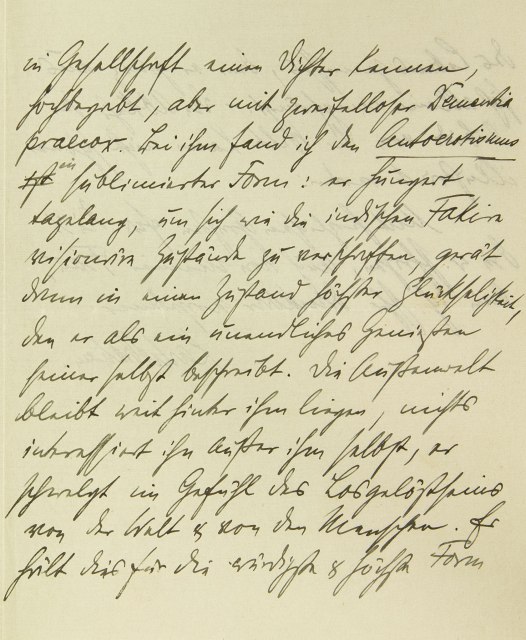 in Gesellschaft einen Dichter kennen,
hochbegabt, aber mit zweifelloser Dementia
praecox. Bei ihm fand ich den Autoerotismus
in sublimierter Form: er hungert
tagelang, um sich wie die indischen Fakire
visionäre Zustände zu verschaffen, gerät
dann in einen Zustand höchster Glückseligkeit,
den er als ein unendliches Genießen
seiner selbst beschreibt. Die Außenwelt
bleibt weit hinter ihm liegen, nichts
interessiert ihn außer ihm selbst, er
schwelgt im Gefühl des Losgelöstseins
von der Welt & von den Menschen. Er
hält dies für die würdigste & höchste Form